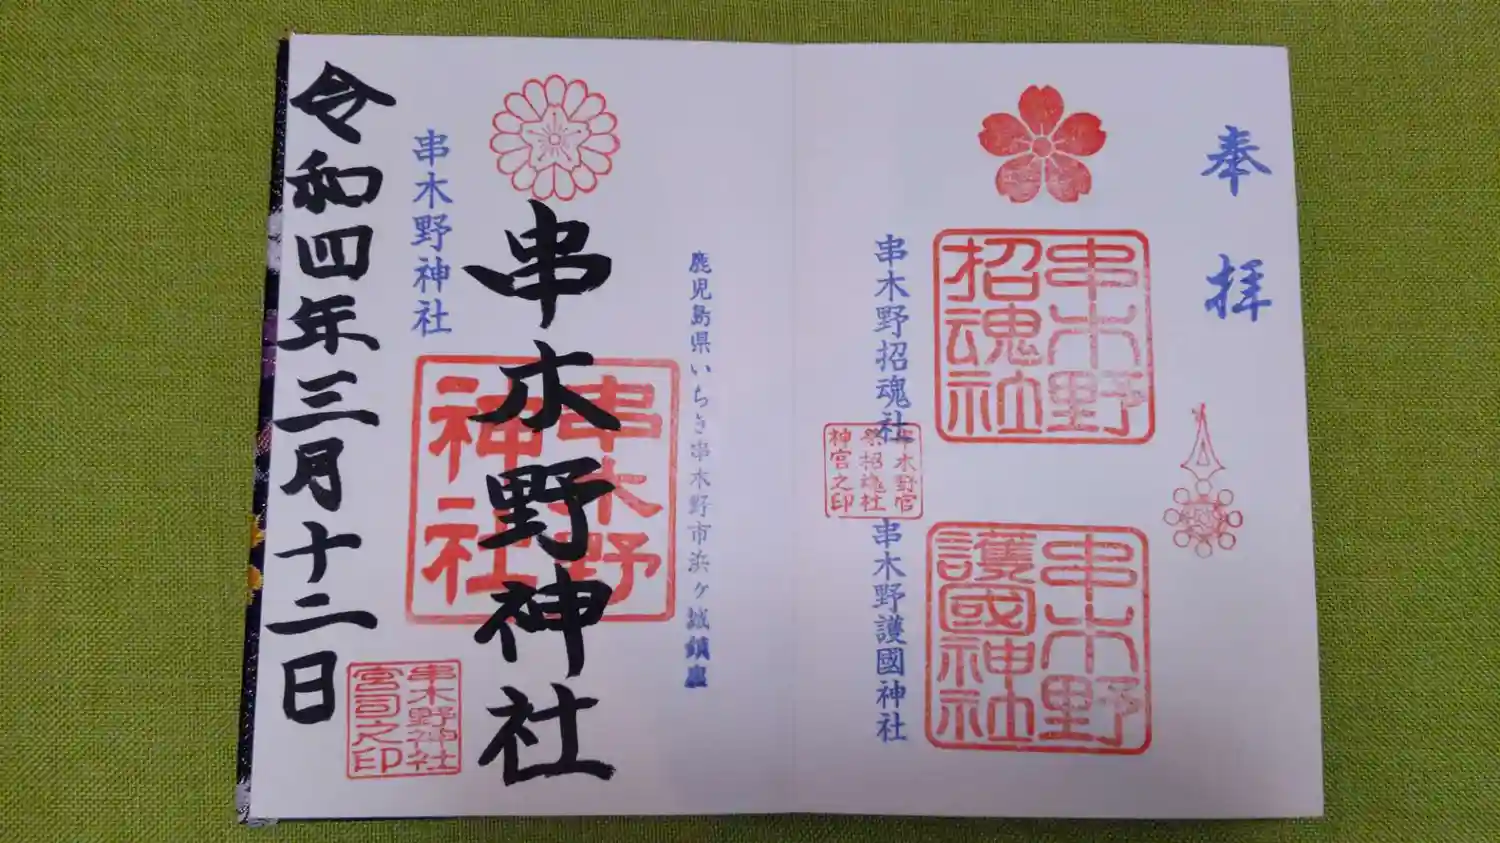 奉拝
串木野招魂社
串木野招魂社
串木野護國神社
串木野護國神社
鹿児島県いちき串木野市浜ヶ城鎮座
串木野神社
串木野神社
串木野神社
串木野神社宮司之印
令和四年三月十二日